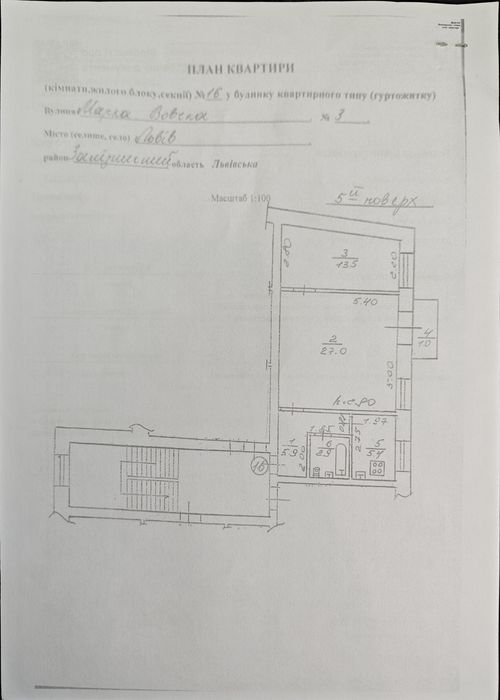 ПЛАН КВАРТИРИ
(кімнати,жилого блоку,секції) № 16 у будинку квартирного типу (гуртожитку)
Вулиця Марка Вовчка № 3
Місто (селище, село) Львів
район Залізничний область Львівська
Масштаб 1:100
5ий поверх
3
13.5
5.40
2
27.0
4
1.0
5.00
h.=2.90
1.97
1.65
2.75
1
5.9
2.00
6
2.9
5
5.4
16